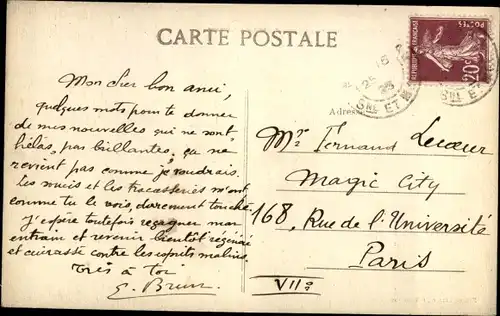 CARTE POSTALE
Mon cher bon ami,
quelques mots pour te donner
de mes nouvelles qui ne sont,
hélas, pas brillantes, ça ne
revient pas comme je voudrais.
Les soucis et les tracasseries m'ont
comme tu le vois, durement touché
J'espère toutefois regagner mon
entrain et revenir bientôt régénéré
et cuirassé contre les esprits malins.
Très à toi
E. Brun
REPUBLIQUE FRANÇAISE
POSTES
20c
25
GNE ET M
Adresse
Mr Fernand Lecoeur
Magic City
168, Rue de l'Université
Paris
VIIe